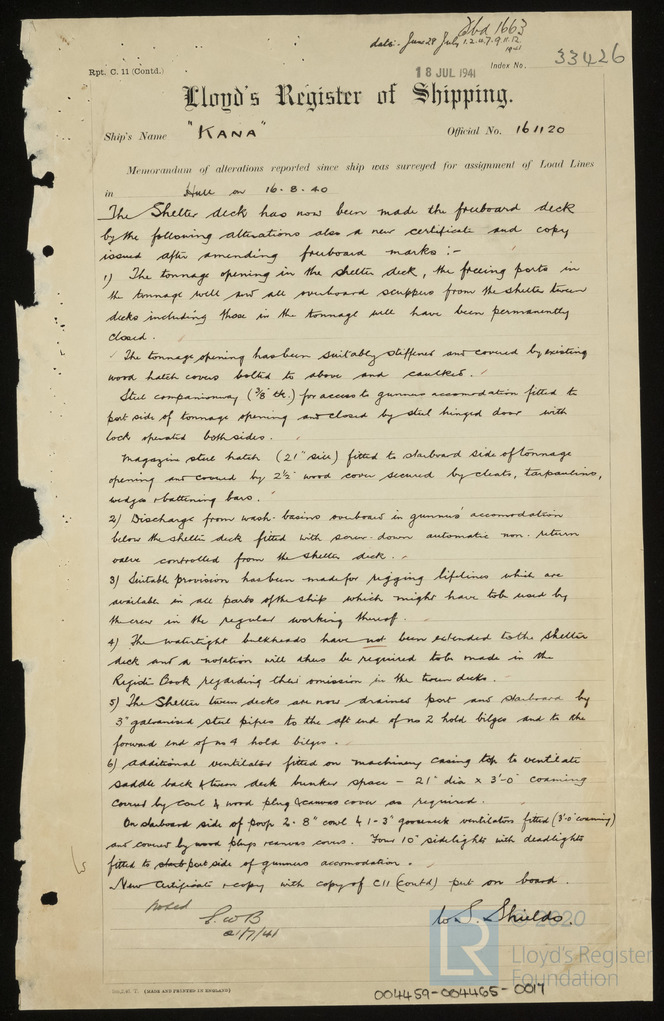 Fbd 1663
date: June 28 July 1.2.4.7.9.11.12.
1941
33426
Rpt. C. 11 (Contd.)
18 JUL 1941
Index No.
Lloyd's Register of Shipping.
Ship's Name "KANA" Official No. 161120
Memorandum of alterations reported since ship was surveyed for assignment of Load Lines
in Hull on 16.8.40
The Shelter deck has now been made the freeboard deck
by the following alterations also a new certificate and copy
issued after amending freeboard marks :-
1) The tonnage opening in the shelter deck, the freeing ports in
the tonnage well and all overboard scuppers from the shelter tween
decks including those in the tonnage well have been permanently
closed.
The tonnage opening has been suitably stiffened and covered by existing
wood hatch covers bolted to above and caulked.
Steel companionway (3/8" tk.) for access to gunners accomodation fitted to
port side of tonnage opening and closed by steel hinged door with
lock operated both sides.
Magazine steel hatch (21" size) fitted to starboard side of tonnage
opening and covered by 2½" wood cover secured by cleats, tarpaulins,
wedges & battening bars.
2) Discharge from wash-basins overboard in gunners' accomodation
below the shelter deck fitted with screw-down automatic non-return
valve controlled from the shelter deck.
3) Suitable provision has been made for rigging lifelines which are
available in all parts of the ship which might have to be used by
the crew in the regular working thereof.
4) The watertight bulkheads have not been extended to the shelter
deck and a notation will thus be required to be made in the
Register Book regarding their omission in the tween decks.
5) The Shelter tween decks are now drained port and starboard by
3" galvanised steel pipes to the aft end of no 2 hold bilges and to the
forward end of no 4 hold bilges.
6) Additional ventilator fitted on machinery casing top to ventilate
saddle back & tween deck bunker space - 21" dia x 3'-0" coaming
covered by cowl & wood plug & canvas cover as required.
On starboard side of poop 2-8" cowl & 1-3" gooseneck ventilators fitted (3'-0" coaming)
and covered by wood plugs & canvas covers. Four 10" sidelights with deadlights
fitted to port side of gunners accomodation.
New Certificate & copy with copy of C11 (contd) put on board.
Noted
L.W.B
21/7/41
W. S. Shields.
© 2020
LR
Lloyd's Register
Foundation
(MADE AND PRINTED IN ENGLAND)
004459-004465-0017